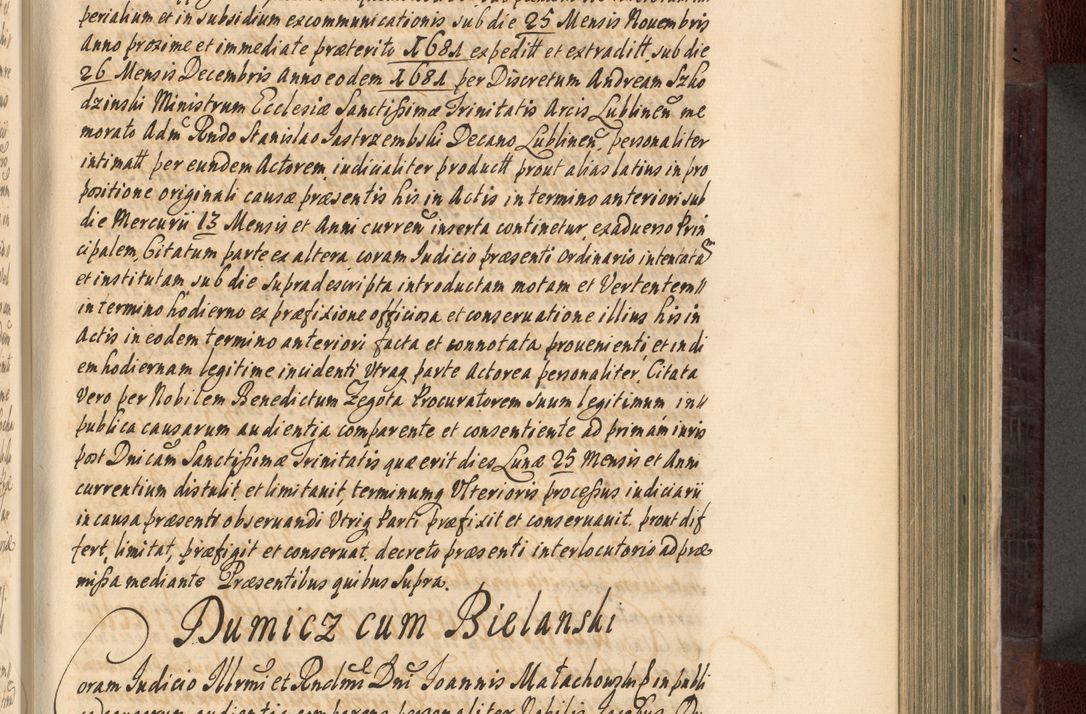 perialium et in subsidium excommunicationis sub die 25 Mensis Nouembris
Anno proxime et immediate præterito 1681 expeditt et extraditt sub die
26 Mensis Decembris Anno eodem 1681 per Discretum Andream Szko
dzinski Ministrum Ecclesiæ Sanctissimæ Trinitatis Arcis Lublinen me
morato Adm Rndo Stanislao Jastrzembski Decano Lublinen, personaliter
intimatt per eundem Actorem iudicialiter productt prout alias latius in pro
positione originali causæ præsentis his in Actis in termino anteriori sub
die Mercurii 13 Mensis et Anni curren inserta continetur, ex aduerso Prin
cipalem, Citatum parte ex altera, coram Iudicio præsenti ordinario intentatam
et institutam sub die supradescripta introductam motam et Vertentem
in termino hodierno ex præfixione officiosa et conseruatione illius his in
Actis in eodem termino anteriori facta et connotata prouenienti et in di
em hodiernam legitime incidenti Utraq parte Actorea personaliter, Citata
Vero per Nobilem Benedictum Zegota Procuratorem suum legitimum in
publica causarum audientia comparente et consentiente ad primam iuris
post Dnicam Sanctissimæ Trinitatis quæ erit dies Lunæ 25 Mensis et Anni
currentium distulit et limitauit, terminumq Ulterioris processus iudiciarii
in causa præsenti obseruandi Utriq Parti præfixit et conseruauit, prout dif
fert, limitat, præfigit et conseruat, decreto præsenti interlocutorio ad præ
missa mediante Præsentibus quibus supra.
Dumicz cum Bielanski
Coram Iudicio Illrmi et Rndmi Dni Joannis Małachowski in publi
ca causarum audientia comparens personaliter Nobilis Jacobus Du